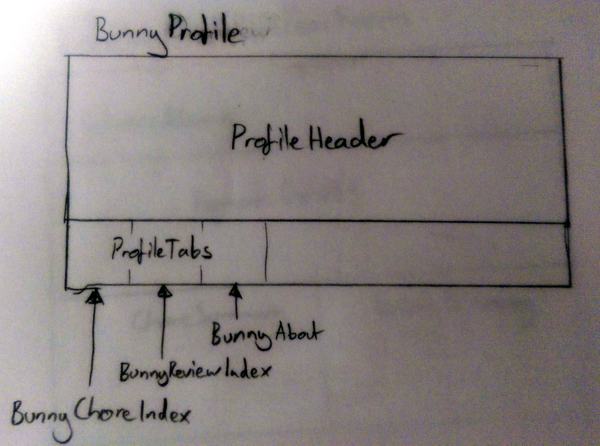 BunnyProfile
ProfileHeader
ProfileTabs
BunnyAbout
BunnyReviewIndex
BunnyChoreIndex